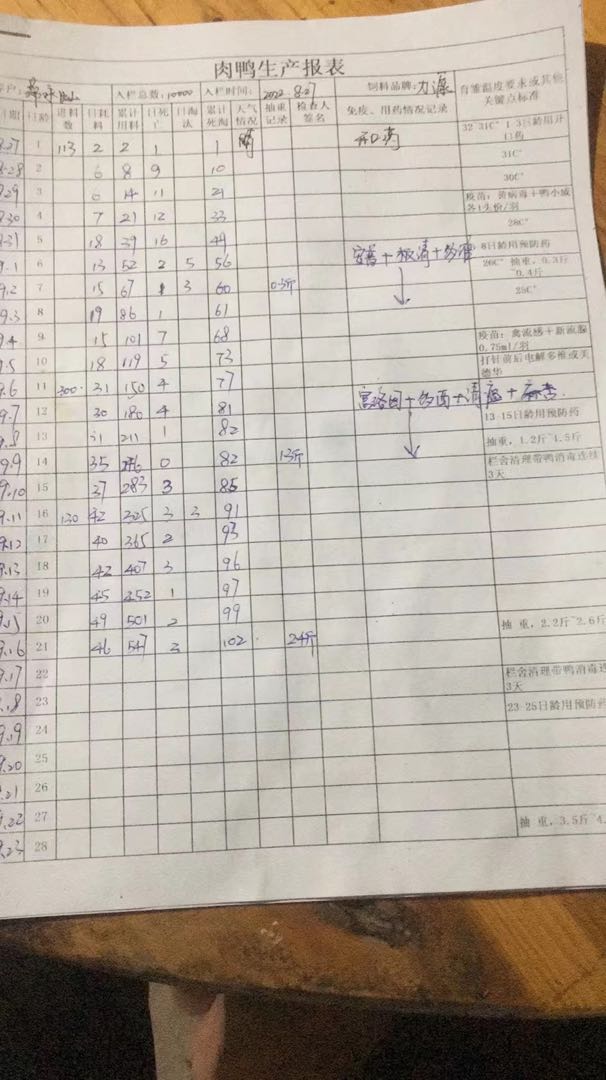 肉鸭生产报表
入栏总数:10000 入栏时间:2022.8.27 饲料品牌:力源 育雏温度要求或其他关键点标准
日期 日龄 进料数 日耗料 累计用料 日死亡 日淘汰 累计死淘 天气情况 抽重记录 检查人签名 免疫、用药情况记录
8.27 1 113 2 2 1 1 晴 开口药 32-31C° 1-3日龄用开口药
8.28 2 6 8 9 10 31C°
8.29 3 6 14 11 21 30C°
8.30 4 7 21 12 33 疫苗:黄病毒+鸭小减各1头份/羽
8.31 5 18 39 16 49 28C°
9.1 6 13 52 2 5 56 8日龄用预防药
9.2 7 15 67 1 3 60 0.3斤 26C° 抽重,0.3斤~0.4斤
9.3 8 19 86 1 61 25C°
9.4 9 15 101 7 68
9.5 10 18 119 5 73 疫苗:禽流感+新流腺0.75ml/羽
9.6 11 300 31 150 4 77 打针前后电解多维或美德华
9.7 12 30 180 4 81
9.8 13 31 211 1 82 13-15日龄用预防药
9.9 14 35 246 0 82 1.3斤 抽重,1.2斤~1.5斤
9.10 15 37 283 3 85 栏舍清理带鸭消毒连续3天
9.11 16 130 42 325 3 3 91
9.12 17 40 365 2 93
9.13 18 42 407 3 96
9.14 19 45 452 1 97
9.15 20 49 501 2 99
9.16 21 46 547 3 102 2.4斤 抽重,2.2斤~2.6斤
9.17 22
9.18 23 栏舍清理带鸭消毒连续3天
9.19 24 23-25日龄用预防药
9.20 25
9.21 26
9.22 27
9.23 28 抽重,3.5斤~4.